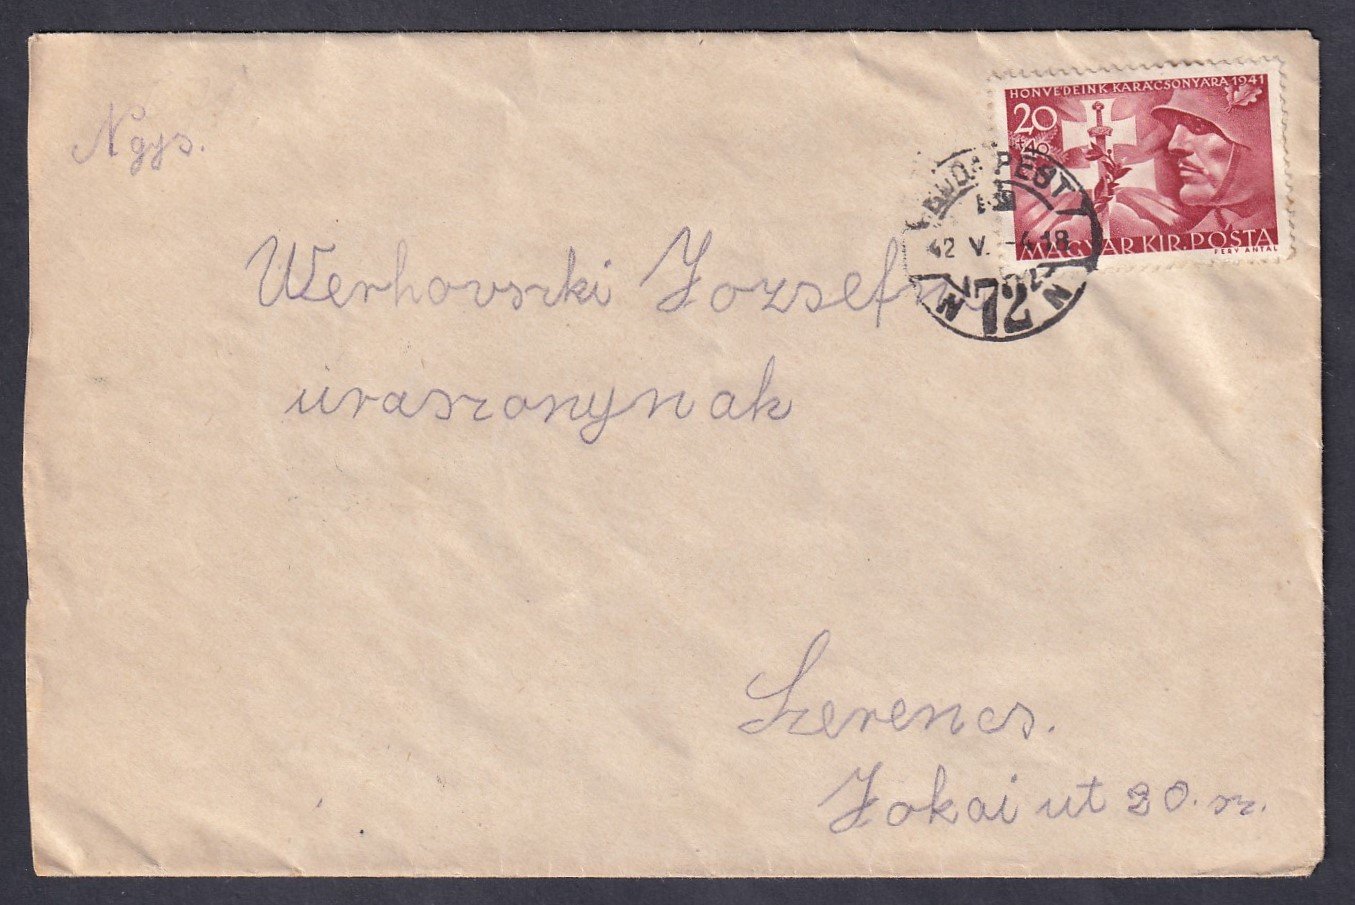 Ngys.
HONVÉDEINK KARÁCSONYÁRA 1941
20
+40
MAGYAR KIR. POSTA
FERY ANTAL
BUDAPEST
42 V. -4.18
72
Werhovszki Jozsefn
uraszonynak
Szerencs.
Jokai ut 20. sz.